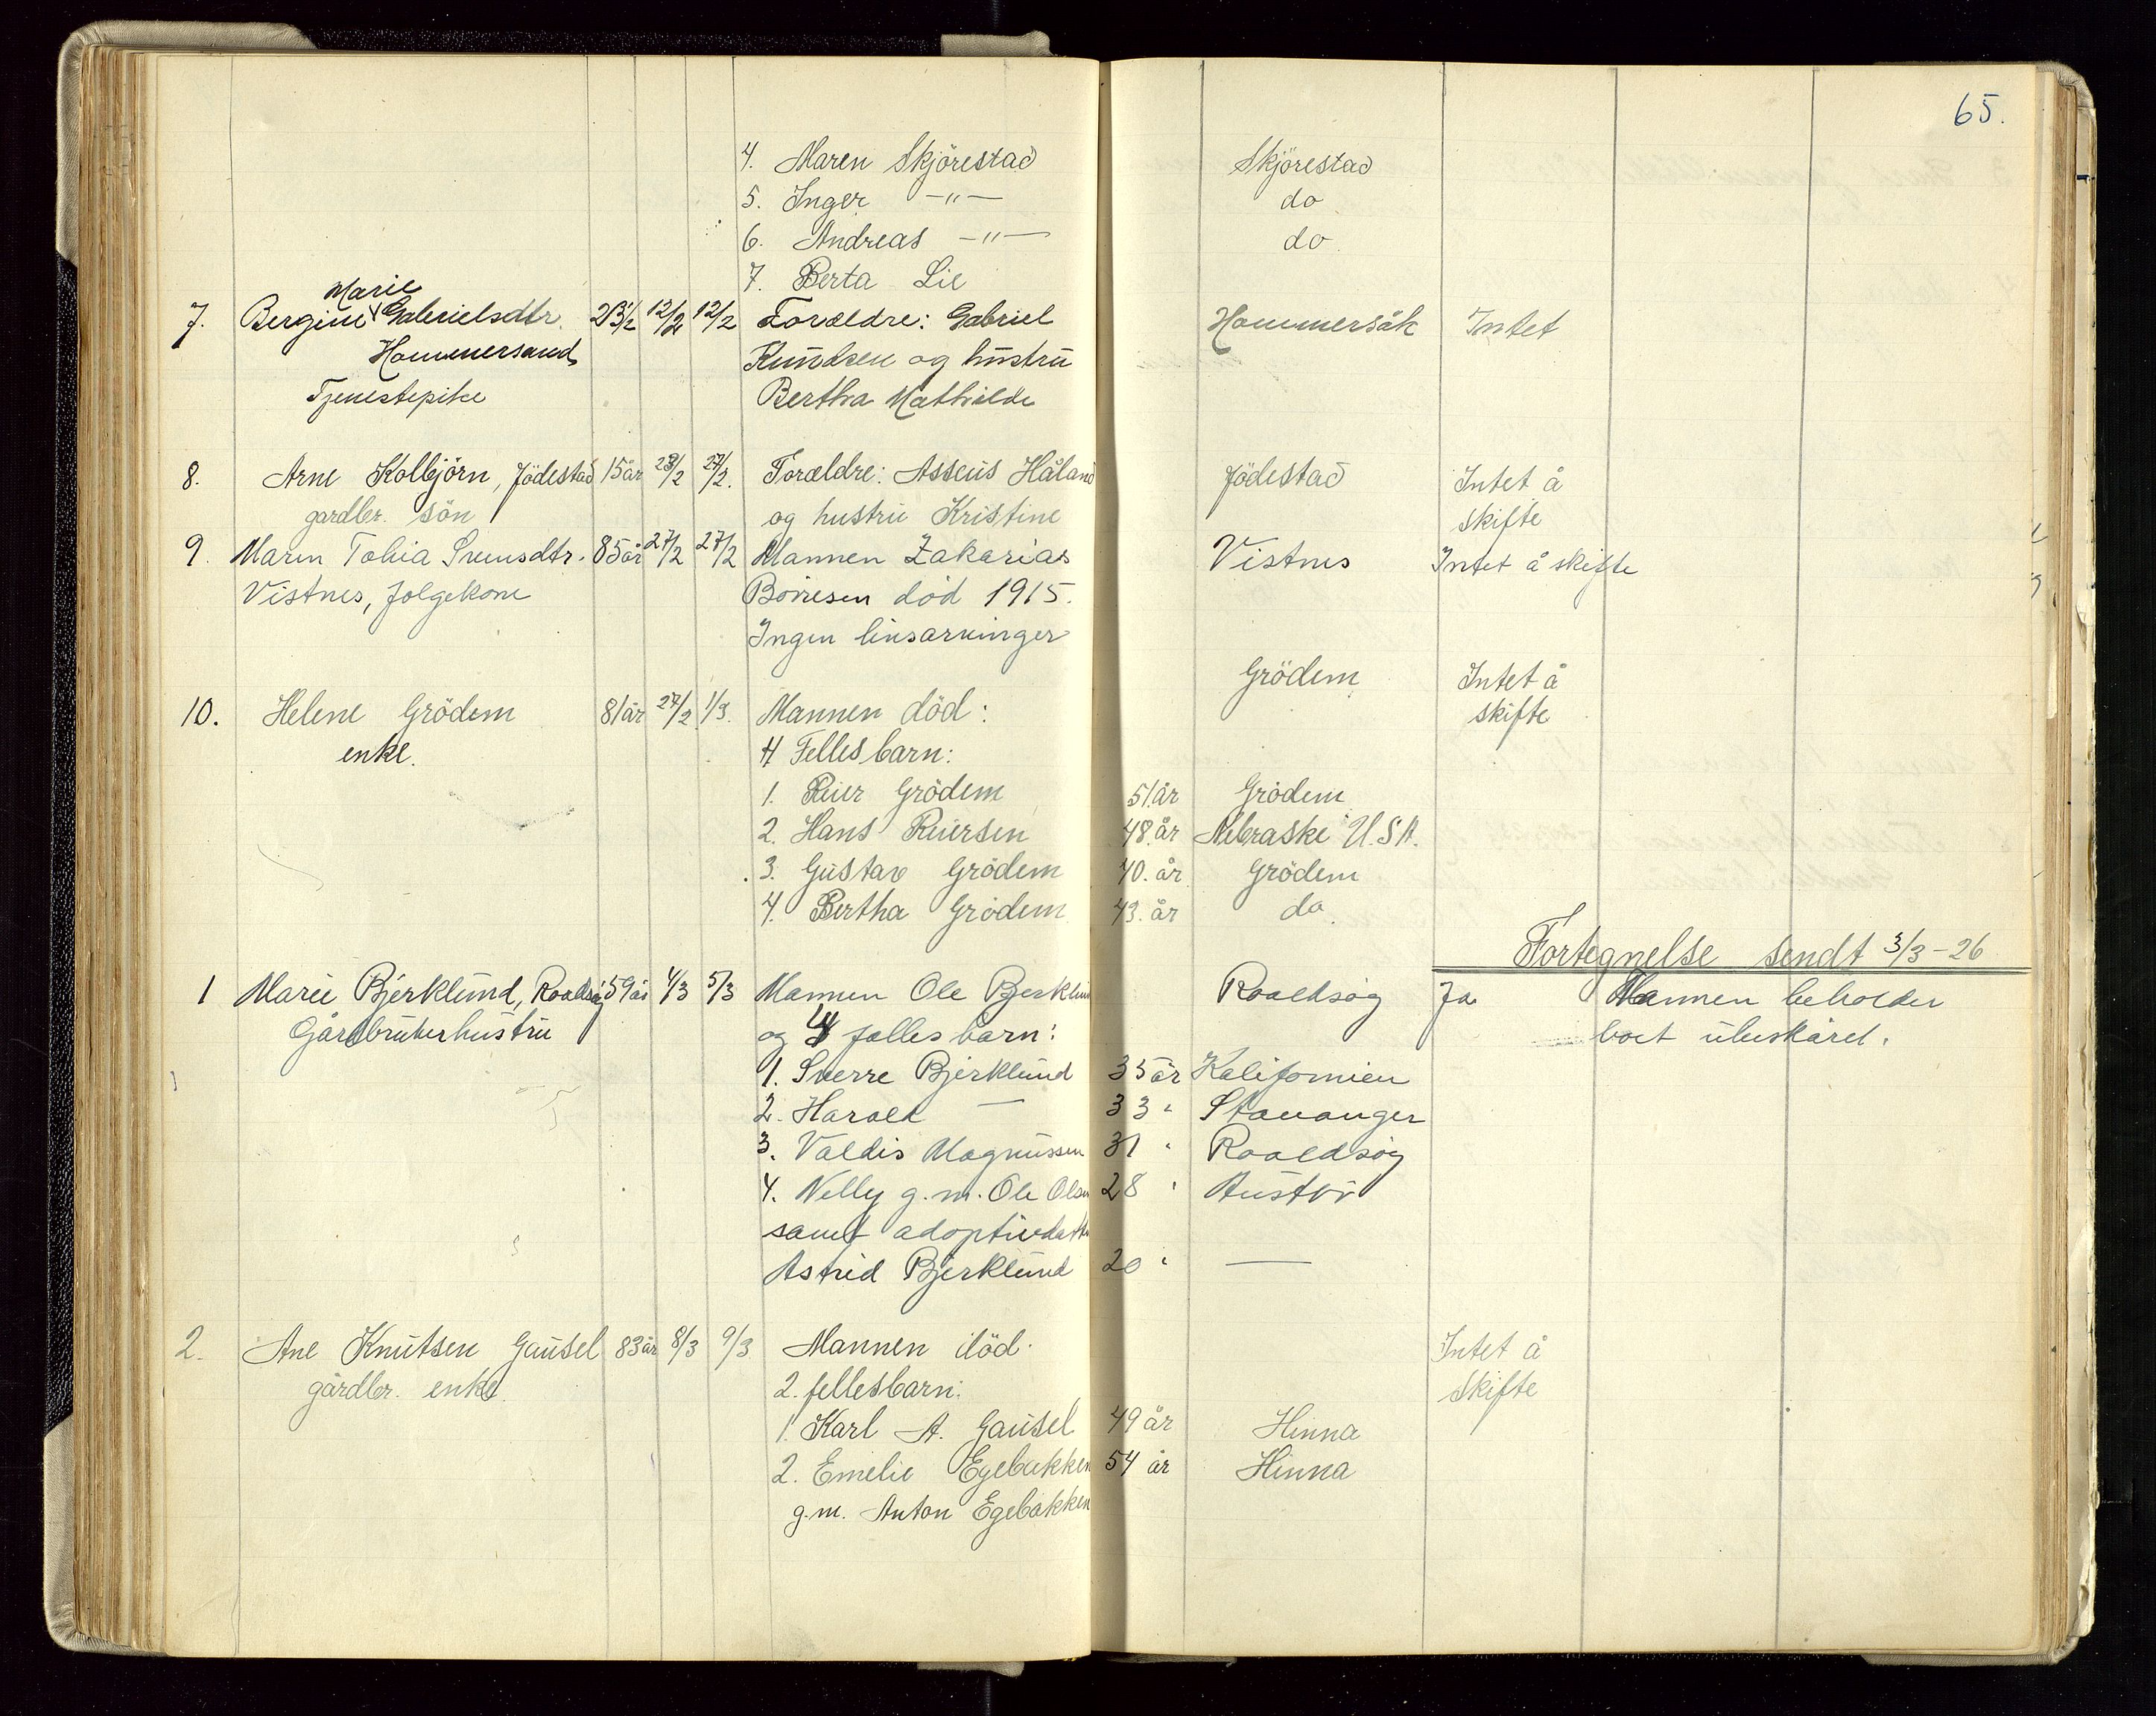 65.
4. Maren Skjörestad Skjörestad
5. Inger —"— do
6. Andreas —"— do
7. Berta Lie
Marie
7. Bergine Gabrielsdtr. 12/2 12/2 Forældre: Gabriel Hommersåk Intet
Hommersand Knudsen og hustru
Tjenestepike Bertha Mathilde
8. Arne Kolbjörn, Jödestad 15 år 23/2 27/2. Forældre: Asseus Håland Jödestad Intet å
gardbr. sön og hustru Kristine skifte
9. Maren Tobia Svensdtr. 85 år 27/2 27/2 Mannen Zakarias Vistnes Intet å skifte
Vistnes, folgekone Börresen död 1915.
Ingen livsarvinger
10. Helene Grödem 81 år 27/2 1/3. Mannen död: Grödem Intet å
enke. 4 Fellesbarn: skifte
1. Reier Grödem 51. år Grödem
2. Hans Reiersen 48. år Nebraske U.S.A.
3. Gustav Grödem 40. år Grödem
4. Bertha Grödem 43. år do.
Fortegnelse sendt 3/3-26
1 Marie Bjerklund, Roaldsøy 59 år 4/3 5/3 Mannen Ole Bjerklund Roaldsøy Ja Mannen beholder
Gårdbrukerhustru og 4 felles barn: boet ubeskåret.
1. Sverre Bjerklund 35 år Kalifornien
2. Harald — 33 " Stavanger
3. Valdis Magnussen 31 " Roaldsøy
4. Nelly g.m. Ole Olsen 28 " Austbö
samt adoptivdatter
Astrid Bjerklund 20 " —
2. Ane Knutsen Gausel 83 år 8/3 9/3 Mannen död. Intet å
gårdbr. enke. 2. fellesbarn: Skifte
1. Karl A. Gausel 49 år Hinna
2. Emelie Egebakken 54 år Hinna
g.m. Anton Egebakken